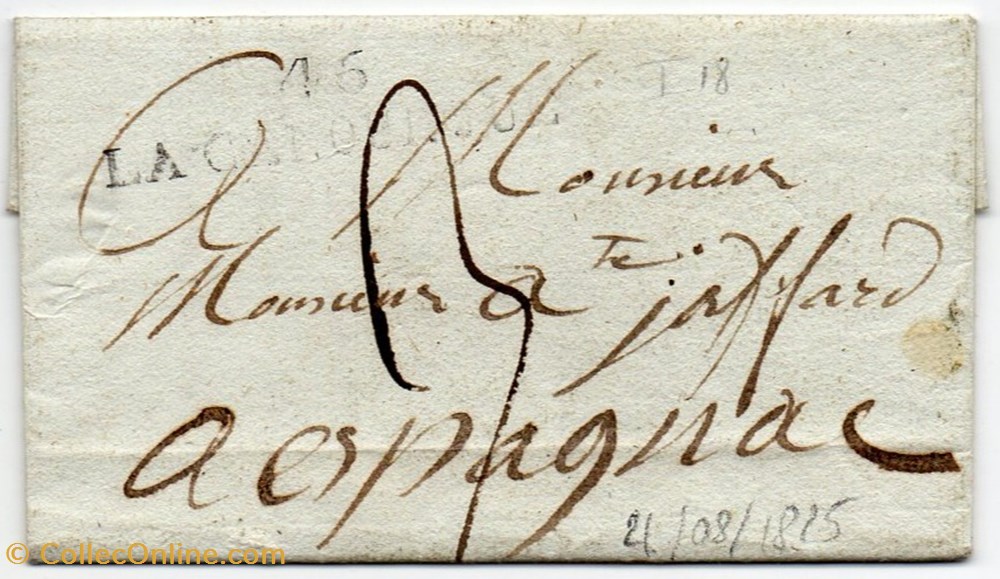 46
LA CANOURGUE
T 18
A Monsieur
Monsieur a te jaffard
3
a espagnac
21/08/1825
© CollecOnline.com